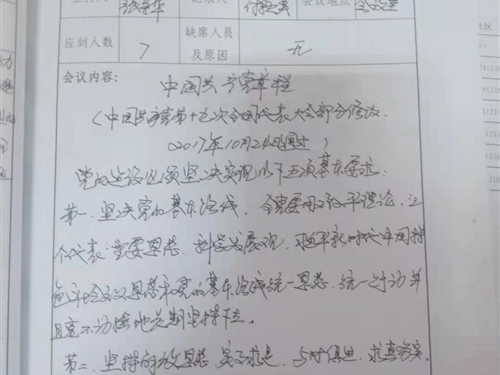 会议地点
应到人数 7 缺席人员及原因 无
会议内容：
中国共产党章程
（中国共产党第十九次全国代表大会部分修改
2017年10月24日通过）
党的建设必须坚决实现以下五项基本要求
第一，坚决党的基本路线，全党要用邓小平理论，三
个代表重要思想，科学发展观，习近平新时代中国特
色社会主义思想和党的基本路线统一思想，统一行动并
且毫不动摇地长期坚持下去。
第二，坚持解放思想，实事求是，与时俱进，求真务实。